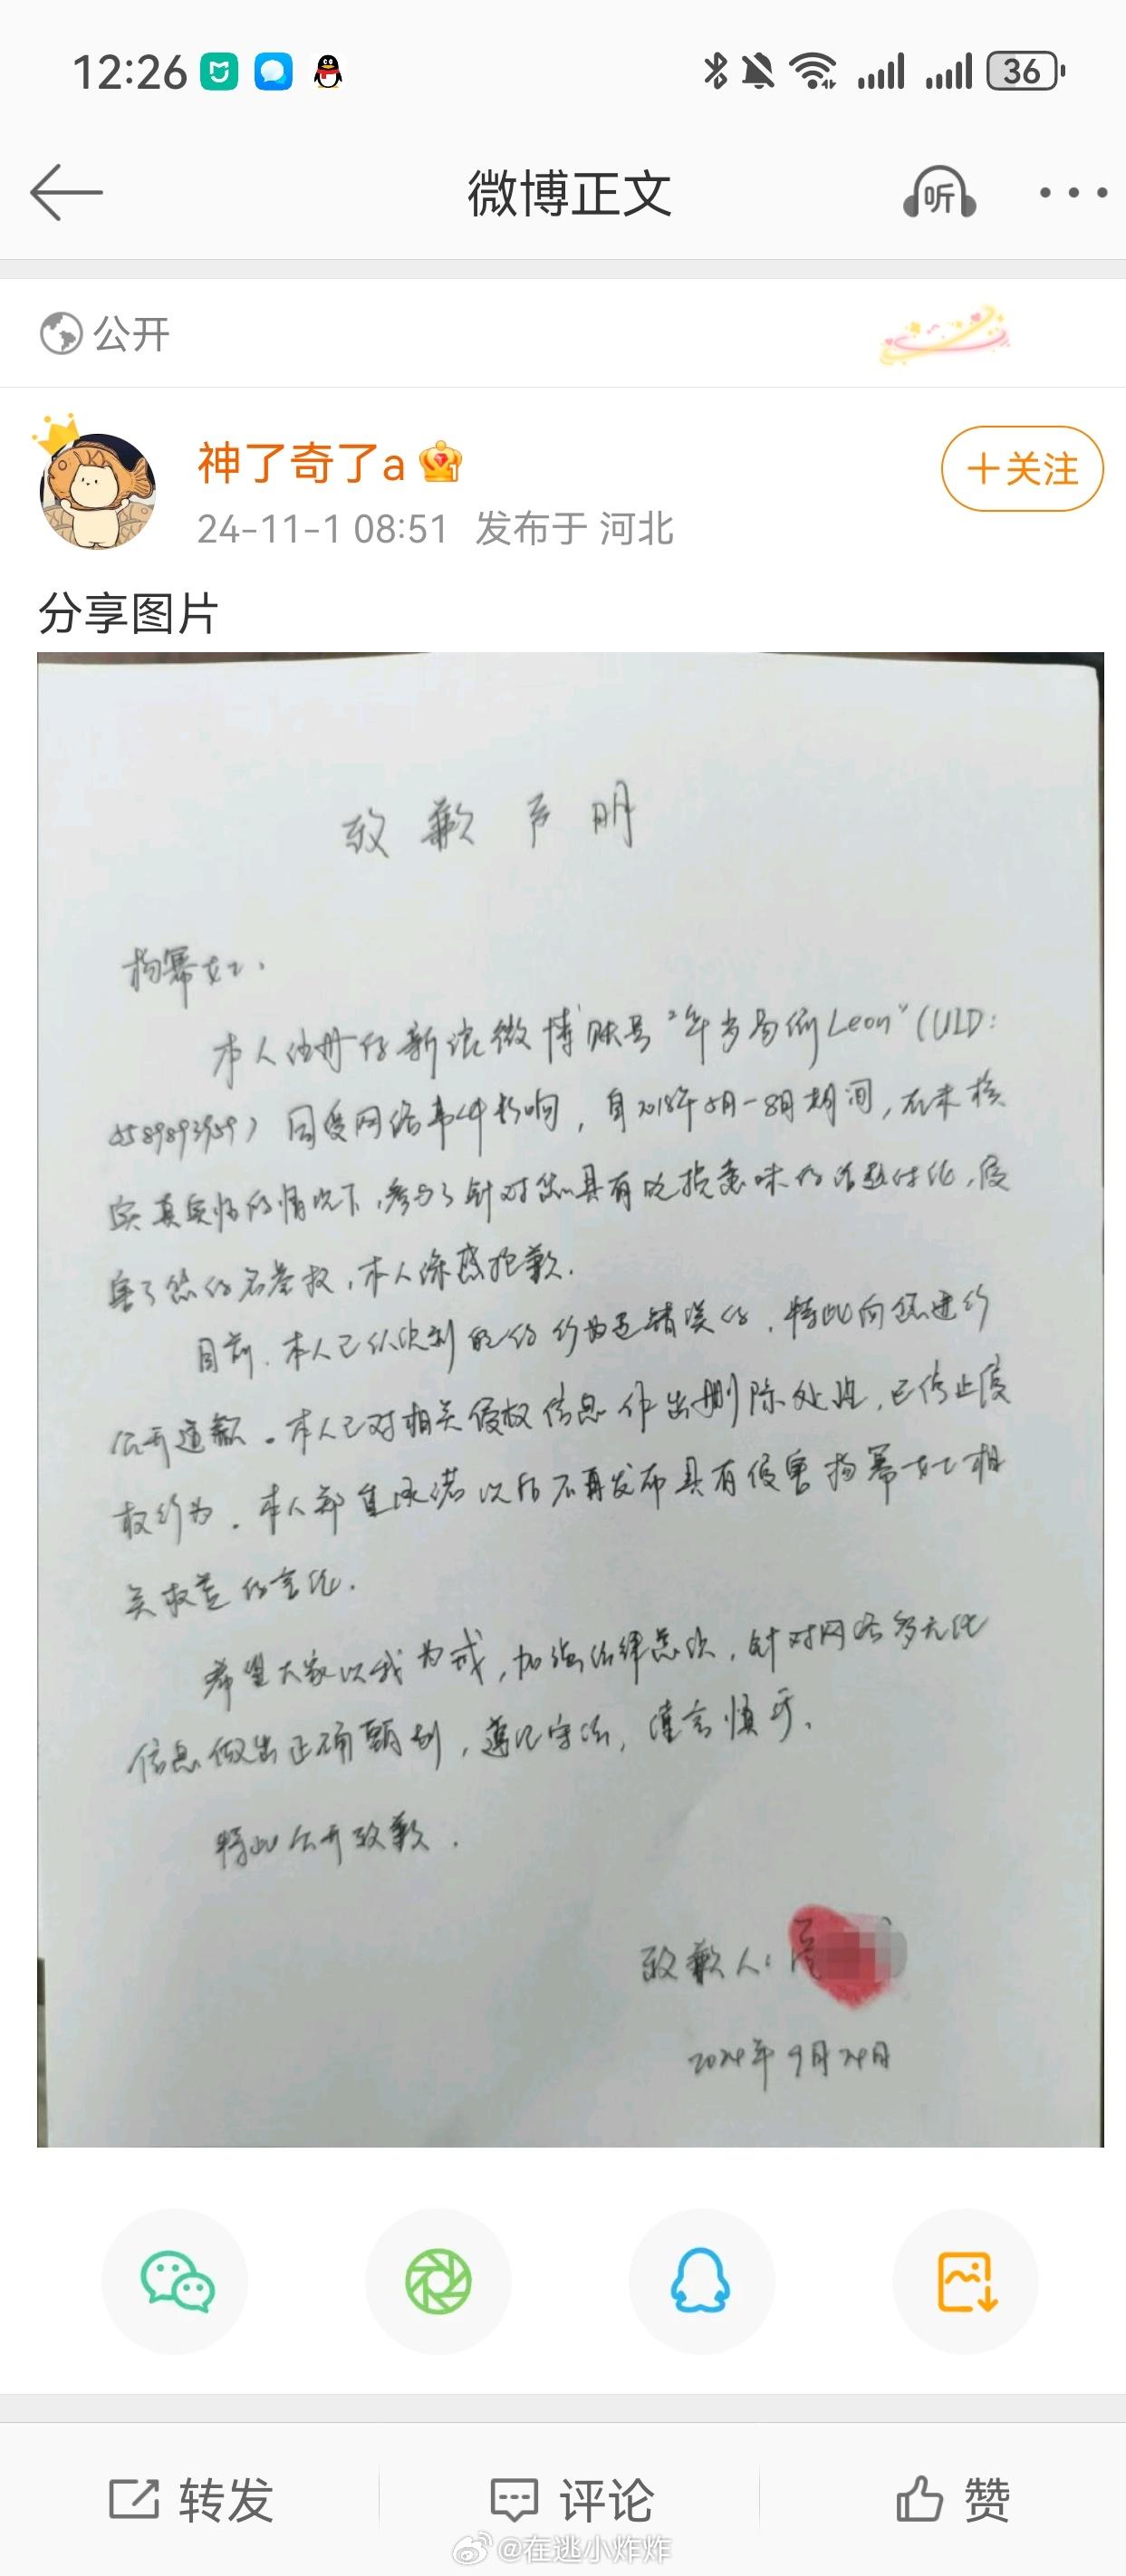 12:26
36
微博正文
听
公开
神了奇了a
+关注
24-11-1 08:51 发布于 河北
分享图片
致歉声明
杨幂女士：
本人注册的新浪微博账号“年少局俐Leon”(UID:
5589893959）因受网络事件影响，自2018年5月-8月期间，在未核
实真实性的情况下，参与了针对您具有诋毁意味的话题讨论，侵
害了您的名誉权，本人深感抱歉.
目前，本人已认识到的行为是错误的，特此向您进行
公开道歉。本人已对相关侵权信息作出删除处理，已停止侵
权行为。本人郑重承诺以后不再发布具有侵害杨幂女士相
关权益的言论.
希望大家以我为戒，加强法律意识，针对网络多元化
信息做出正确甄别，遵纪守法，谨言慎行、
特此公开致歉.
致歉人:
2024年9月24日
转发
评论
赞
@在逃小炸炸